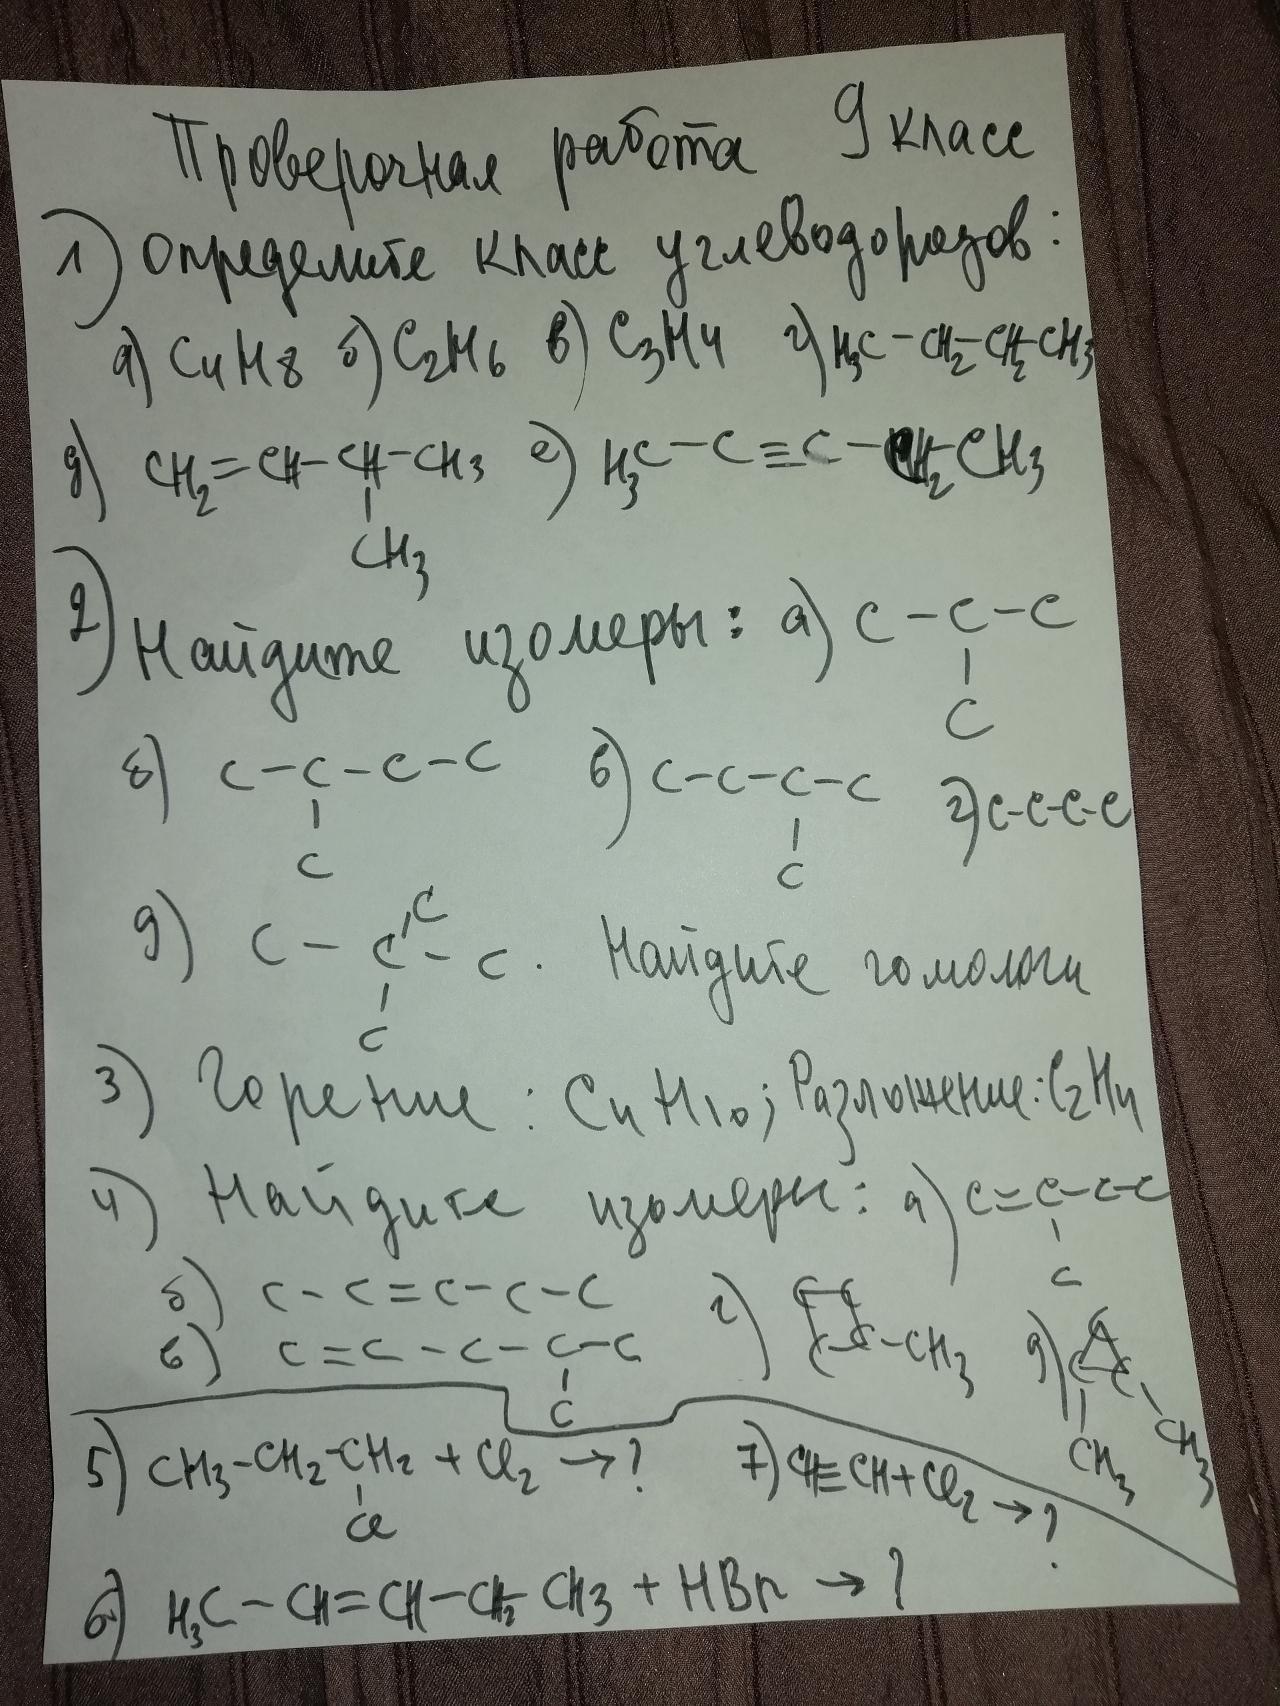 Проверочная работа 9 класс
1) Определите класс углеводородов:
а) C4H8 б) C2H6 в) C3H4 г) H3C-CH2-CH2-CH3
д) CH2=CH-CH-CH3 е) H3C-C≡C-CH2-CH3
CH3
2) Найдите изомеры: а) C-C-C
C
б) C-C-C-C в) C-C-C-C г) C-C-C-C
C C
C
д) C-C-C. Найдите гомологи
C
3) Горение: C4H10; Разложение: C2H4
4) Найдите изомеры: а) C=C-C-C
C
б) C-C=C-C-C г) C-C
C-C-CH3 д) C
C-C
в) C=C-C-C-C
C
CH3 CH3
5) CH3-CH2-CH2+Cl2→? 7) CH≡CH+Cl2→?
Cl
6) H3C-CH=CH-CH2 CH3+HBr→?